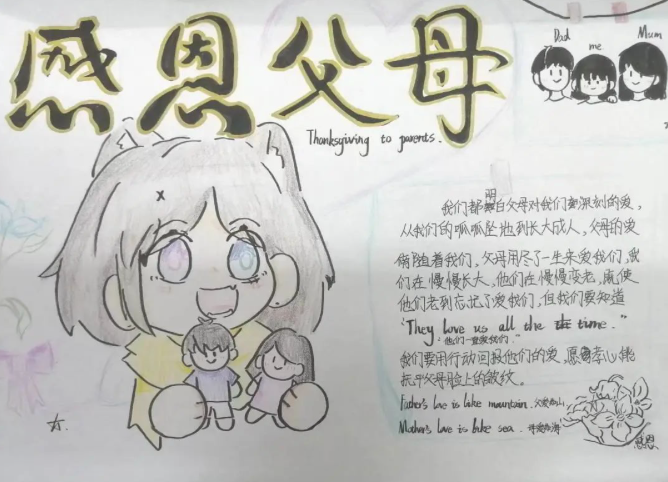 感恩父母
Thanksgiving to parents.
Dad
me
Mum
我们都明白父母对我们深刻的爱，
从我们的呱呱坠地到长大成人，父母的爱
伴随着我们，父母用尽了一生来爱我们，我
们在慢慢长大，他们在慢慢变老，即使
他们老到忘记了爱我们，但我们要知道
"They love us all the time."
"他们一直爱我们."
我们要用行动回报他们的爱，愿孝心能
抚平父母脸上的皱纹。
Father's love is like mountain. 父爱如山
Mother's love is like sea. 母爱如海
感恩